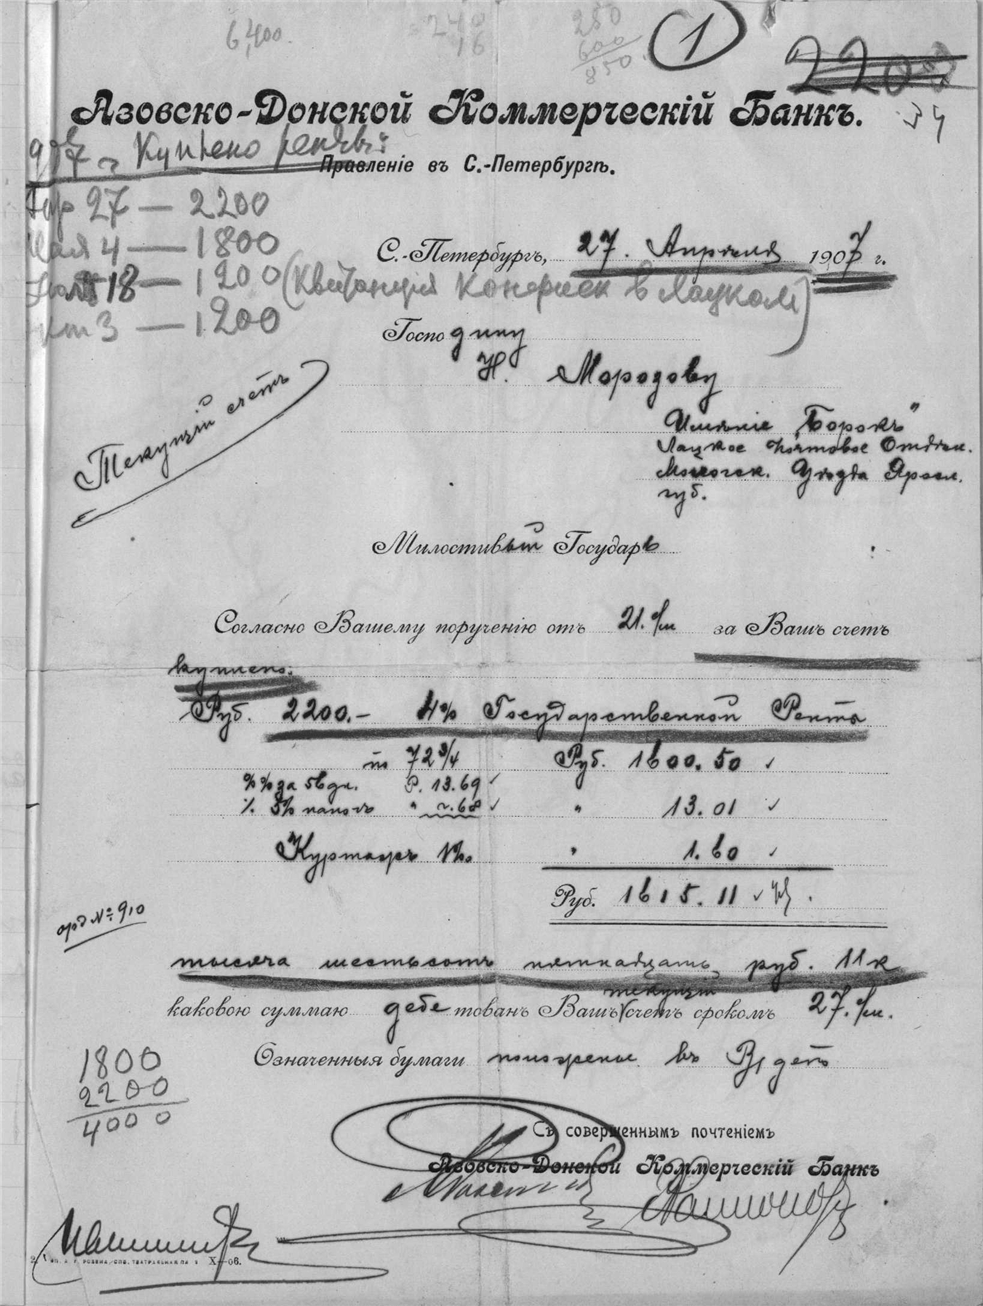 6,400.
240
16
250
600
850.
1
2200
34
Азовско-Донской Коммерческій Банкъ.
Куплено ренты:
Правленіе въ С.-Петербургѣ.
27 — 2200
Мая 4 — 1800
18 — 1200 (Квитанция Конфиск в Лацком)
3 — 1200
С.-Петербургъ, 27. Апрѣля 1907 г.
Господину
Н. Морозову
Имѣніе „Борокъ"
Лацкое почтовое Отдѣл.
Мологск. Уѣзда Яросл.
губ.
Текущій счетъ
Милостивый Государь
Согласно Вашему порученію отъ 21. с/м за Вашъ счетъ
куплено:
Руб. 2200.- 4% Государственной Ренты
72 3/4 Руб. 1600.50
%% за 56 дн. Р. 13.69
% 5% налогъ " -.68 " 13.01
Куртажъ 1‰ " 1.60
Руб. 1615.11
орд № 910
тысяча шестьсотъ пятнадцать руб. 11 к
каковою суммаю дебетованъ Вашъ текущій счетъ срокомъ 27. с/м.
Означенныя бумаги положены въ
1800
2200
4000
Съ совершеннымъ почтеніемъ
Азовско-Донской Коммерческій Банкъ
X—06.